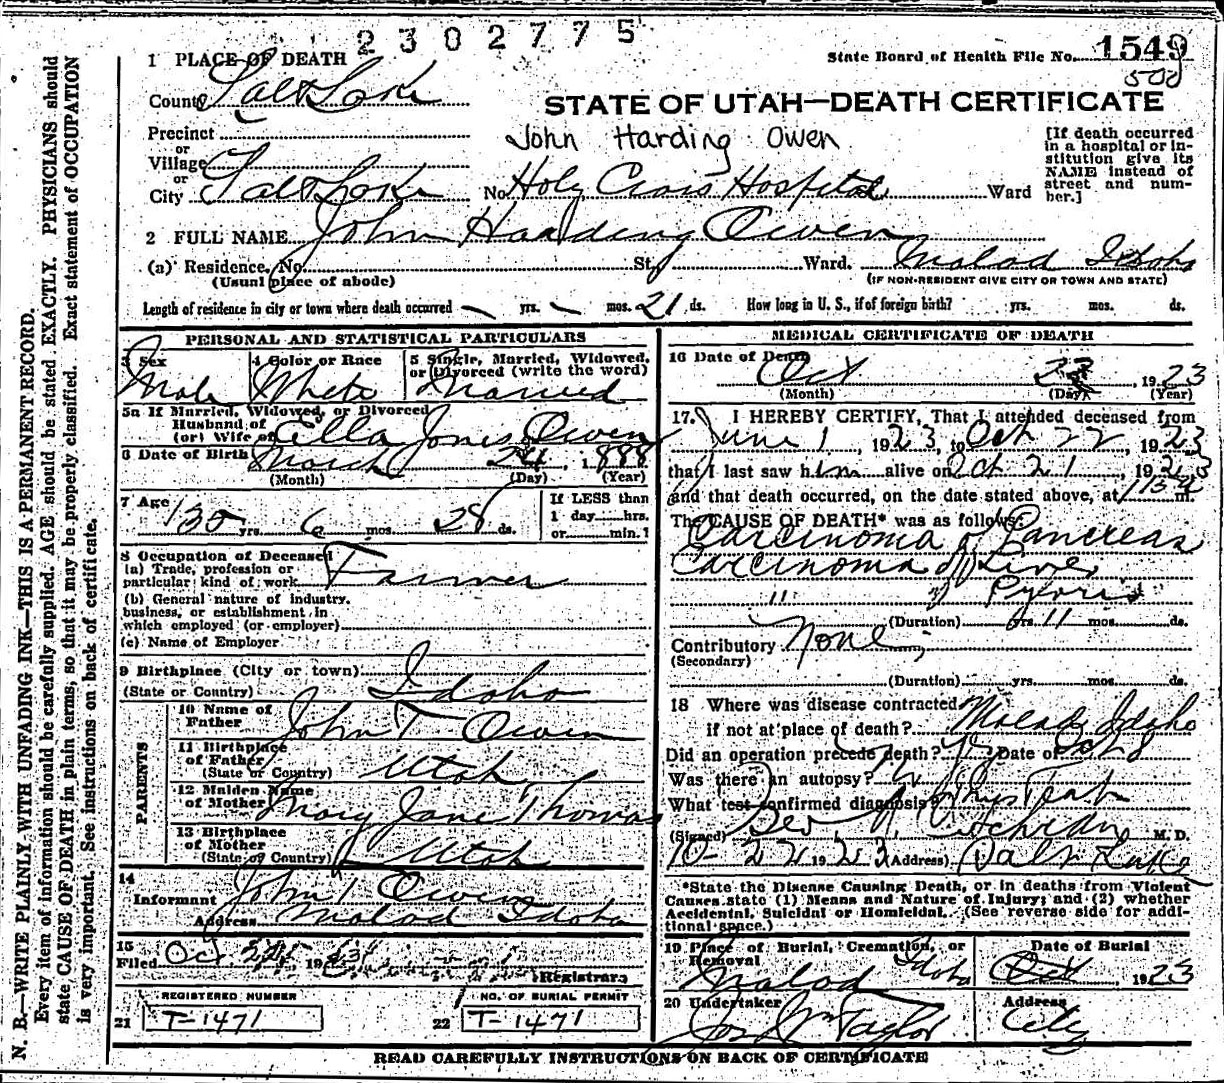 2302775
State Board of Health File No. 1549
500
1 PLACE OF DEATH
County Salt Lake
STATE OF UTAH—DEATH CERTIFICATE
Precinct
or
Village
or
City Salt Lake
John Harding Owen
No. Holy Cross Hospital Ward
[If death occurred
in a hospital or in-
stitution give its
NAME instead of
street and num-
ber.]
2 FULL NAME John Harding Owen
(a) Residence, No. St., Ward. Malad Idaho
(Usual place of abode) (IF NON-RESIDENT GIVE CITY OR TOWN AND STATE)
Length of residence in city or town where death occurred — yrs. — mos. 21 ds. How long in U. S., if of foreign birth? yrs. mos. ds.
PERSONAL AND STATISTICAL PARTICULARS
3 Sex
Male
4 Color or Race
White
5 Single, Married, Widowed,
or Divorced (write the word)
Married
5a If Married, Widowed, or Divorced
Husband of
(or) Wife of Ella Jones Owen
6 Date of Birth March 24, 1888
(Month) (Day) (Year)
7 Age
35 yrs. 6 mos. 28 ds.
If LESS than
1 day hrs.
or min.?
8 Occupation of Deceased
(a) Trade, profession or
particular kind of work Farmer
(b) General nature of industry,
business, or establishment in
which employed (or employer)
(c) Name of Employer
9 Birthplace (City or town)
(State or Country) Idaho
PARENTS
10 Name of
Father John T Owen
11 Birthplace
of Father
(State or Country) Utah
12 Maiden Name
of Mother Mary Jane Thomas
13 Birthplace
of Mother
(State or Country) Utah
14
Informant John T Owen
Address Malad Idaho
15
Filed Oct 19
Registrar
REGISTERED NUMBER
21 T-1471
NO. OF BURIAL PERMIT
22 T-1471
MEDICAL CERTIFICATE OF DEATH
16 Date of Death
Oct 22, 1923
(Month) (Day) (Year)
17. I HEREBY CERTIFY, That I attended deceased from
June 1, 1923, to Oct 22, 1923
that I last saw him alive on Oct 21, 1923
and that death occurred, on the date stated above, at m.
The CAUSE OF DEATH* was as follows:
Carcinoma of Pancreas
Carcinoma of Liver
" " Pyloris
(Duration) yrs. 11 mos. ds.
Contributory None
(Secondary)
(Duration) yrs. mos. ds.
18 Where was disease contracted
if not at place of death? Malad, Idaho
Did an operation precede death? Yes Date of Oct 8
Was there an autopsy?
What test confirmed diagnosis?
(Signed) M. D.
10-22 1923 (Address) Salt Lake
*State the Disease Causing Death, or in deaths from Violent
Causes state (1) Means and Nature of Injury; and (2) whether
Accidental, Suicidal or Homicidal. (See reverse side for addi-
tional space.)
19 Place of Burial, Cremation, or
Removal
Malad Idaho
Date of Burial
Oct 1923
20 Undertaker
Jos Wm Taylor
Address
City
READ CAREFULLY INSTRUCTIONS ON BACK OF CERTIFICATE
N. B.—WRITE PLAINLY, WITH UNFADING INK—THIS IS A PERMANENT RECORD.
Every item of information should be carefully supplied. AGE should be stated EXACTLY. PHYSICIANS should
state CAUSE OF DEATH in plain terms, so that it may be properly classified. Exact statement of OCCUPATION
is very important. See instructions on back of certificate.